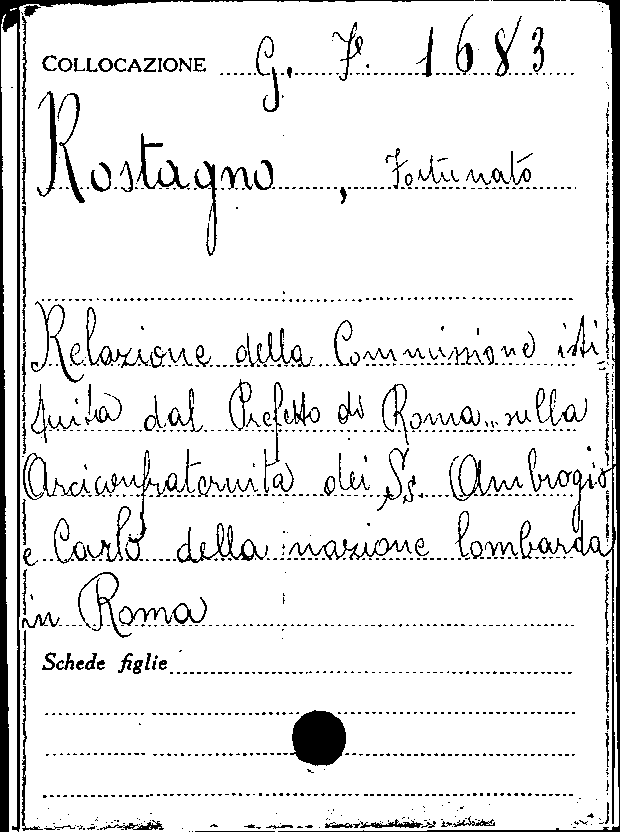 COLLOCAZIONE G. F. 1683
Rostagno, Fortunato
Relazione della Commissione isti-
tuita dal Prefetto di Roma sulla
Arciconfraternita dei Ss. Ambrogio
e Carlo della nazione lombarda
in Roma
Schede figlie